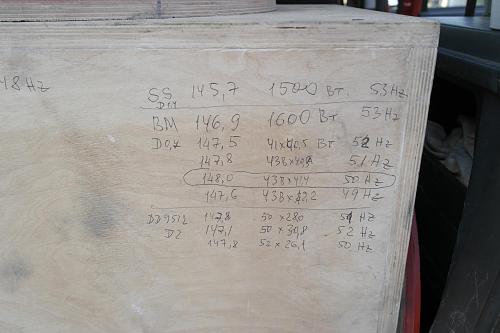 48Hz
SS 145,7 1500 Вт. 53Hz
D1,1
BM 146,9 1600 Вт 53Hz
D0,4 147,5 41x40,5 Вт 52 Hz
147,8 43B x 40,8 51 Hz
148,0 43B x 41,4 50 Hz
147,6 43B x 42,2 49 Hz
DD9512 147,8 50 x 28,0 51 Hz
D2 147,1 50 x 30,8 52 Hz
147,8 52 x 26,1 50 Hz